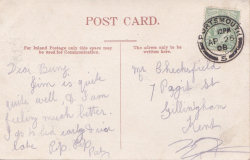 POST CARD.
For Inland Postage only this space may
be used for Communication.
The address only to be
written here.
PORTSMOUTH
AP 26
08
Dear
Jim is quite
quite well & I am
feeling much better.
I go to bed early & rise
late
Mr Checksfield
7 Paget St
Gillingham
Kent